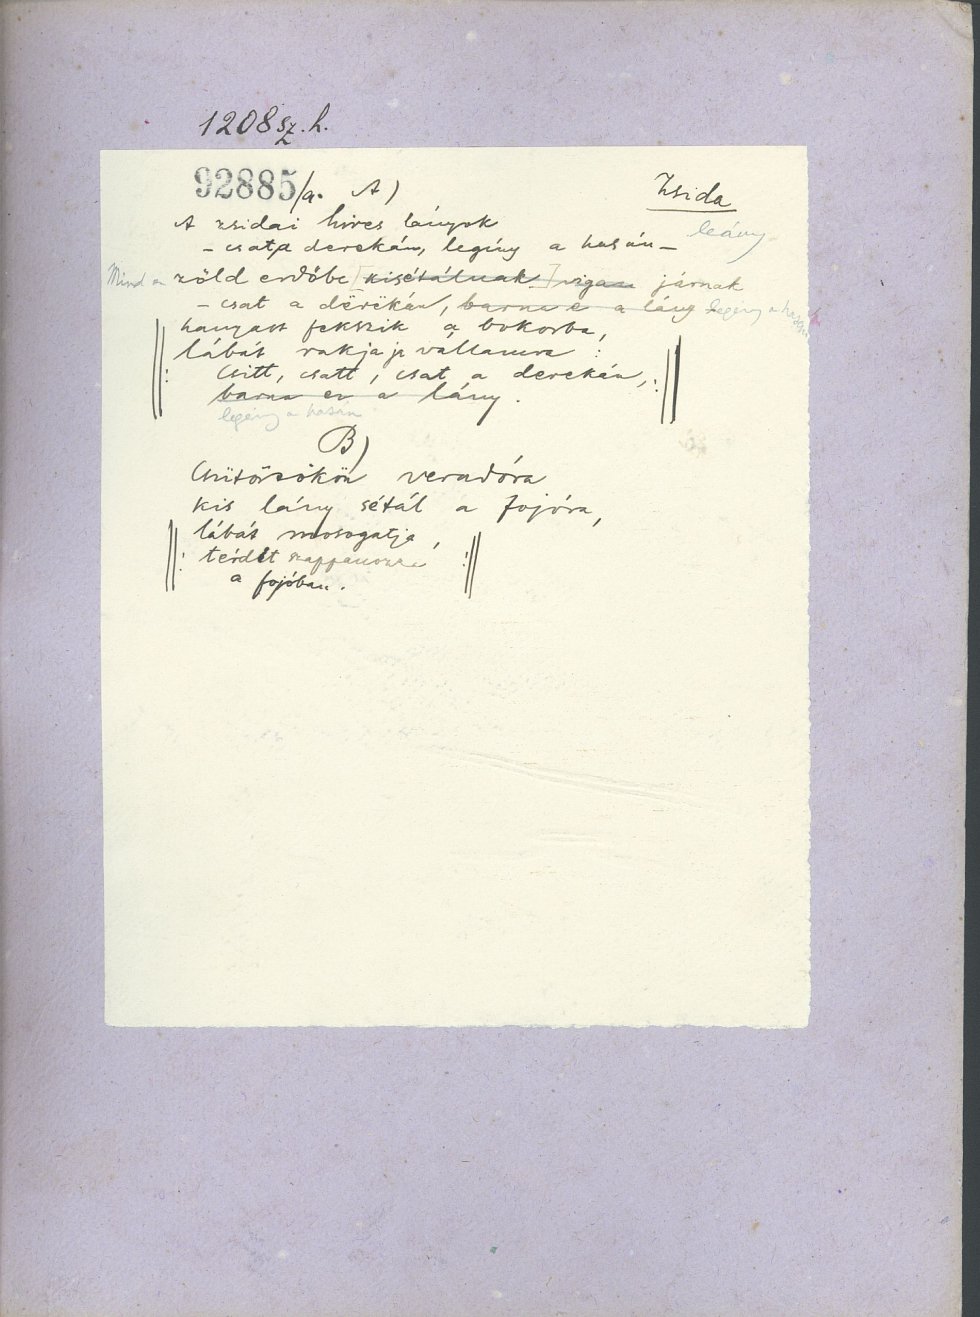 1208 sz. h.
92885/a. A) Zsida
A zsidai hires lányok leány
– csat a derekán, legény a hasán –
Mind a zöld erdőbe [kisétálnak] vigan járnak
– csat a dërëkán, barna e a lány legény a hasán
hanyatt fekszik a bokorba,
lábát rakja a vállamra :
Csitt, csatt, csat a derekán,
barna er a lány.
legény a hasán
B)
Csütörsökön veradóra
kis lány sétál a fojóra,
lábát mosogatja,
térdét szappanozza
a fojóban.